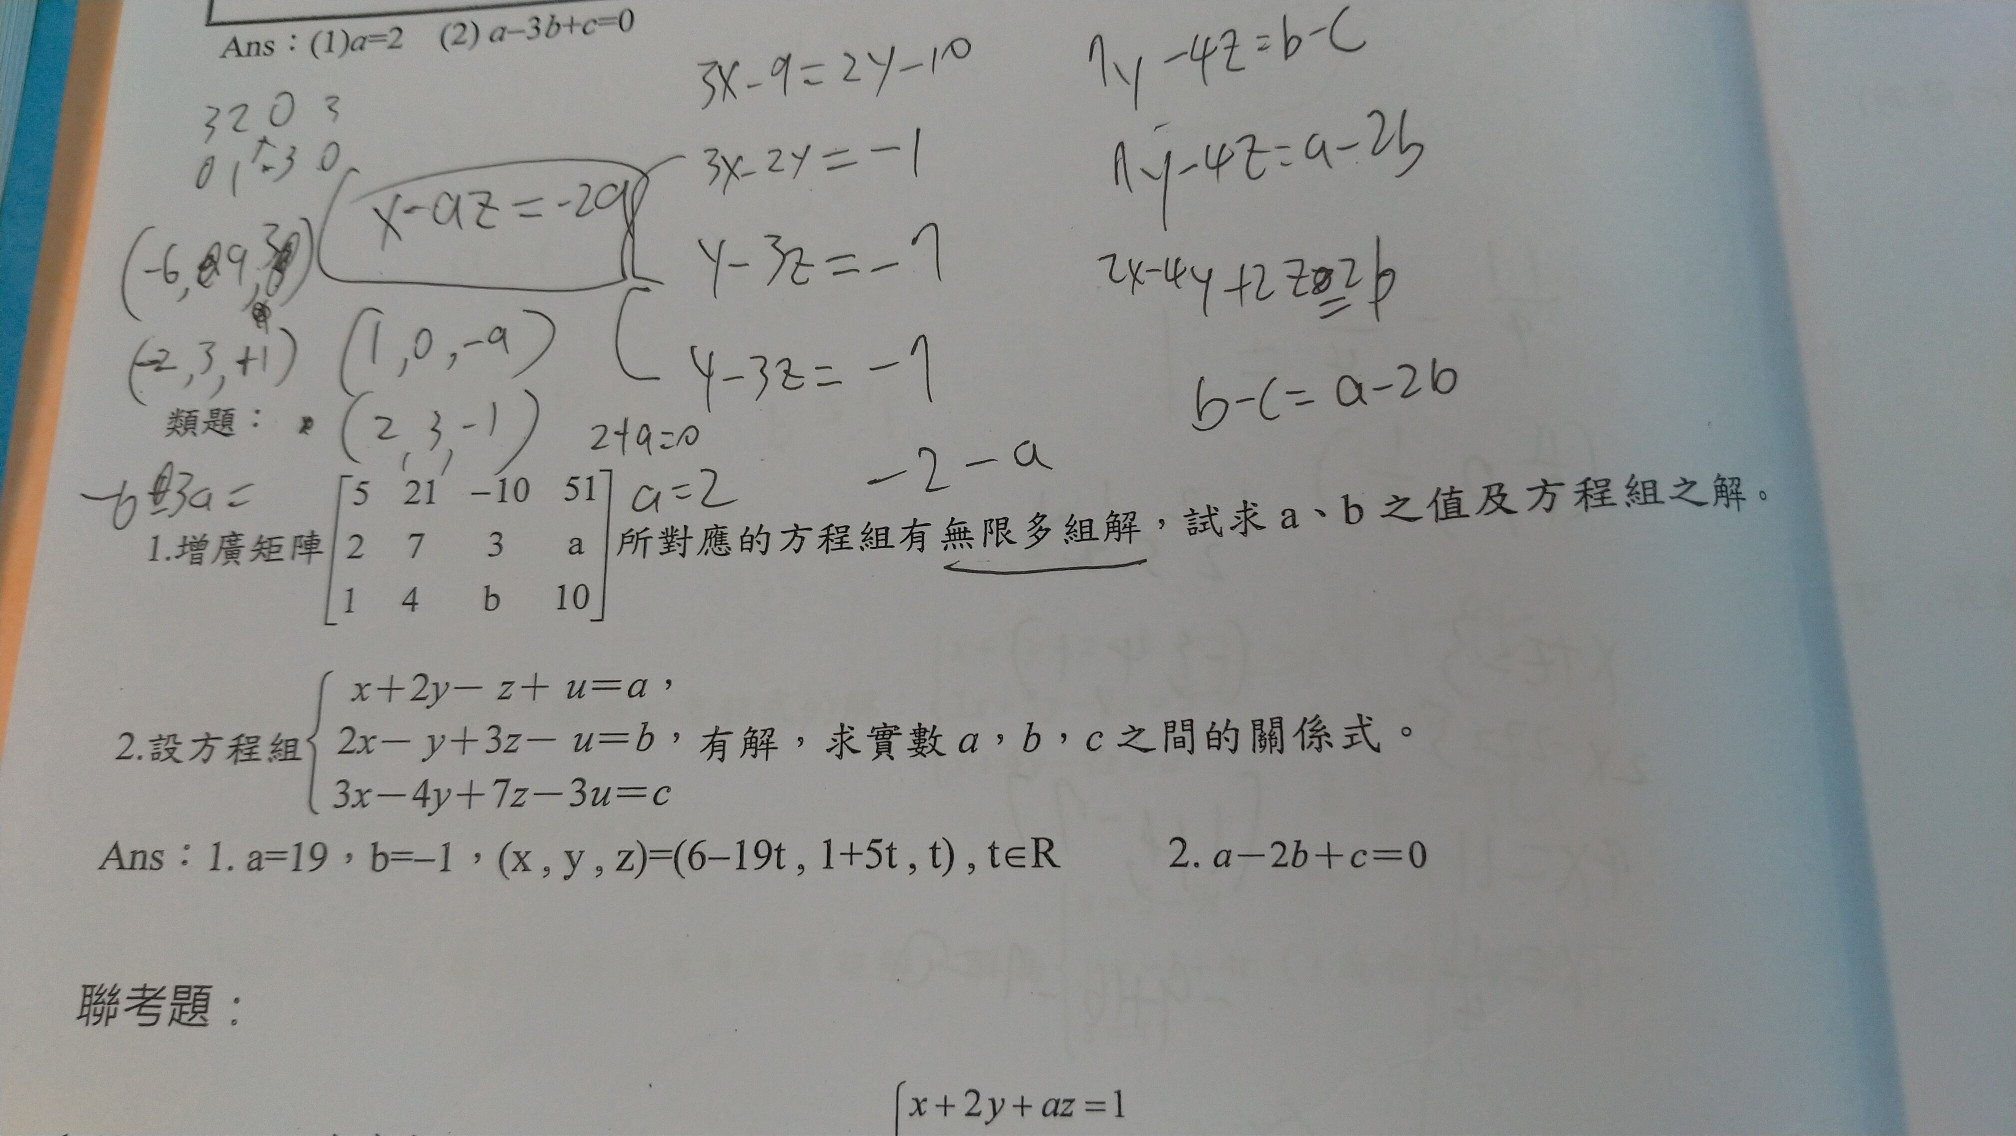 Ans：(1)a=2 (2) a–3b+c=0
3 2 0 3
0 1
3x-9=2y-10
3x-2y=-1
y-3z=-7
y-3z=-7
x-az=-2a
7y-4z=b-c
7y-4z=a-2b
2x-4y+2z=2b
b-c=a-2b
(1,0,-a)
(-2,3,+1)
(2,3,-1)
2+a=0
a=2
-2-a
類題：
1.增廣矩陣
5 21 –10 51
2 7 3 a
1 4 b 10
所對應的方程組有無限多組解，試求 a、b 之值及方程組之解。
x+2y− z+ u=a，
2.設方程組 2x− y+3z− u=b，有解，求實數 a，b，c 之間的關係式。
3x−4y+7z−3u=c
Ans：1. a=19，b=–1，(x , y , z)=(6–19t , 1+5t , t) , t∈R 2. a−2b+c=0
聯考題：
x+2y+az=1